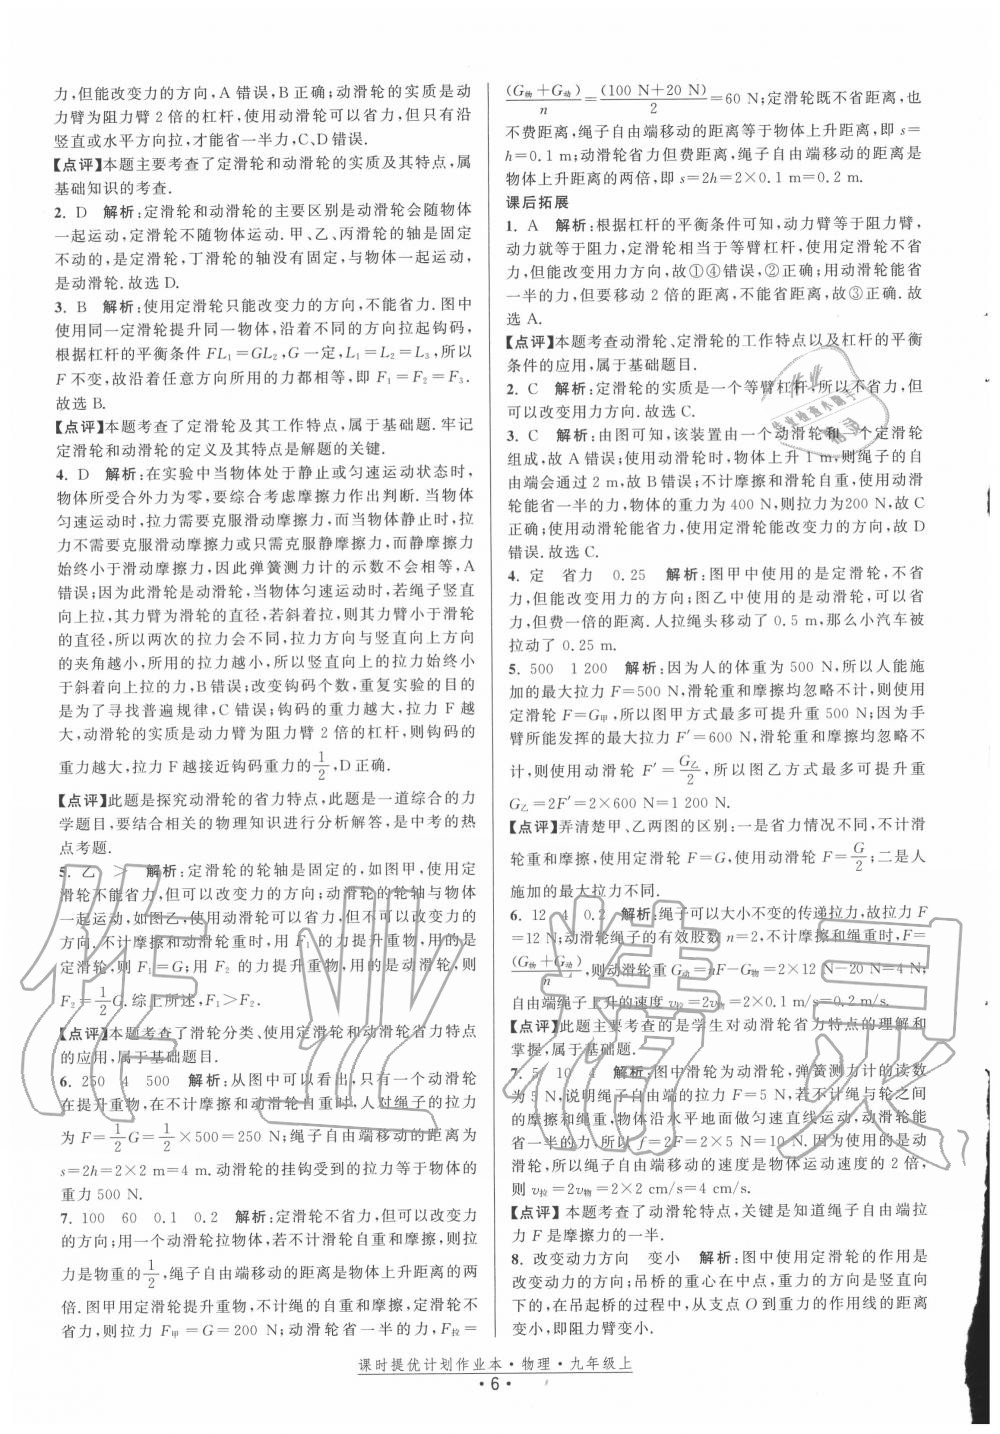 力,但能改变力的方向,A 错误,B 正确;动滑轮的实质是动
力臂为阻力臂 2 倍的杠杆,使用动滑轮可以省力,但只有沿
竖直或水平方向拉,才能省一半力,C、D 错误.
【点评】本题主要考查了定滑轮和动滑轮的实质及其特点,属
基础知识的考查.
2. D 解析:定滑轮和动滑轮的主要区别是动滑轮会随物体
一起运动,定滑轮不随物体运动.甲、乙、丙滑轮的轴是固定
不动的,是定滑轮,丁滑轮的轴没有固定,与物体一起运动,
是动滑轮.故选 D.
3. B 解析:使用定滑轮只能改变力的方向,不能省力.图中
使用同一定滑轮提升同一物体,沿着不同的方向拉起钩码,
根据杠杆的平衡条件 FL₁=GL₂,G 一定,L₁=L₂=L₃,所以
F 不变,故沿着任意方向所用的力都相等,即 F₁=F₂=F₃.
故选 B.
【点评】本题考查了定滑轮及其工作特点,属于基础题.牢记
定滑轮和动滑轮的定义及其特点是解题的关键.
4. D 解析:在实验中当物体处于静止或匀速运动状态时,
物体所受合外力为零,要综合考虑摩擦力作出判断.当物体
匀速运动时,拉力需要克服滑动摩擦力,而当物体静止时,拉
力不需要克服滑动摩擦力或只需克服静摩擦力,而静摩擦力
始终小于滑动摩擦力,因此弹簧测力计的示数不会相等,A
错误;因为此滑轮是动滑轮,当物体匀速运动时,若绳子竖直
向上拉,其力臂为滑轮的直径,若斜着拉,则其力臂小于滑轮
的直径,所以两次的拉力会不同,拉力方向与竖直向上方向
的夹角越小,所用的拉力越小,所以竖直向上拉的拉力,会小
于斜着向上拉的力,B错误;改变钩码个数,重复实验的目的
是为了寻找普遍规律,C 错误;钩码的重力越大,拉力 F 越
大,动滑轮的实质是动力臂为阻力臂 2 倍的杠杆,则钩码的
重力越大,拉力 F 越接近钩码重力的1/2,D正确.
【点评】此题是探究动滑轮的省力特点,此题是一道综合的力
学题目,要结合相关的物理知识进行分析解答,是中考的热
点考题.
5. 乙 > 解析:定滑轮的轮轴是固定的,如图甲,使用定
滑轮不能省力,但可以改变力的方向;动滑轮的轮轴与重物
一起移动,如图乙,使用动滑轮可以省力,但不可以改变力的
方向.不计摩擦和动滑轮重时,用 F₁ 的力提升重物,用的是
定滑轮,则 F₁=G;用 F₂ 的力提升重物,用的是动滑轮,则
F₂=1/2G.综上所述,F₁>F₂.
【点评】本题考查了滑轮分类、使用定滑轮和动滑轮省力特点
的应用,属于基础题目.
6. 250 4 500 解析:从图中可以看出,只有一个动滑轮
在提升重物,在不计摩擦和动滑轮自重时,人对绳子的拉力
为 F=1/2G=1/2×500=250 N;绳子自由端移动的距离为
s=2h=2×2 m=4 m.动滑轮的挂钩受到的拉力等于物体的
重力 500 N.
7. 100 60 0.1 0.2 解析:定滑轮不省力,但可以改变力
的方向;用一个动滑轮拉物体,若不计滑轮自重和摩擦,则拉
力是物重的1/2,绳子自由端移动的距离是物体上升距离的两
倍.图甲用定滑轮提升重物,不计绳的自重和摩擦,定滑轮不
省力,故F甲=G=200 N;动滑轮省一半的力,F拉=
(G物+G动)/n=(100 N+20 N)/2=60 N;定滑轮既不省距离,也
不费距离,绳子自由端移动的距离等于物体上升距离,即 s=
h=0.1 m;动滑轮省力但费距离,绳子自由端移动的距离是
物体上升距离的两倍,即 s=2h=2×0.1 m=0.2 m.
课后拓展
1. A 解析:根据杠杆的平衡条件可知,动力臂等于阻力臂,
动力就等于阻力,定滑轮相当于等臂杠杆,使用定滑轮不省
力,但能改变用力方向,故①④错误,②正确;用动滑轮能省
一半的力,但要移动 2 倍的距离,不能省距离,故③正确.故
选 A.
【点评】本题考查动滑轮、定滑轮的工作特点以及杠杆的平衡
条件的应用,属于基础题目.
2. C 解析:定滑轮的实质是一个等臂杠杆,所以不省力,但
可以改变用力方向.故选 C.
3. C 解析:由图可知,该装置由一个动滑轮和一个定滑轮
组成,故 A 错误;使用动滑轮,物体上升 1 m,则绳子的自由
端会通过 2 m,故 B 错误;不计摩擦和滑轮自重,使用动滑
轮能省一半的力,物体的重力为 400 N,则拉力为200 N,故 C
正确;使用动滑轮能省力,使用定滑轮能改变力的方向,故 D
错误.故选 C.
4. 定 省力 0.25 解析:图甲中使用的是定滑轮,不省
力,但能改变力的方向;图乙中使用的是动滑轮,可以省
力,但费一倍的距离.人拉绳头移动了 0.5 m,那么小汽车被
拉动了 0.25 m.
5. 500 1 200 解析:因为人的体重为 500 N,所以人能施
加的最大拉力 F=500 N,滑轮重和摩擦均忽略不计,则使用
定滑轮 F=G甲,所以图甲方式最多可提升重 500 N;因为手
臂所能发挥的最大拉力 F′=600 N,滑轮重和摩擦均忽略不
计,则使用动滑轮 F′=G乙/2,所以图乙方式最多可提升重
G乙=2F′=2×600 N=1 200 N.
【点评】弄清楚甲、乙两图的区别:一是省力情况不同,不计滑
轮重和摩擦,使用定滑轮 F=G,使用动滑轮 F=G/2;二是人
施加的最大拉力不同.
6. 12 4 0.2 解析:绳子可以大小不变的传递拉力,故拉力 F
=12 N;动滑轮绳子的有效股数 n=2,不计摩擦和绳重时,F=
(G物+G动)/n,则动滑轮重 G动=nF-G物=2×12 N-20 N=4 N;
自由端绳子上升的速度 v拉=2v物=2×0.1 m/s=0.2 m/s.
【点评】此题主要考查的是学生对动滑轮省力特点的理解和
掌握,属于基础题.
7. 5 10 4 解析:图中滑轮为动滑轮,弹簧测力计的读数
为 5 N,说明绳子自由端的拉力 F=5 N,若不计绳与轮之间
的摩擦和绳重,物体沿水平地面做匀速直线运动,动滑轮能
省一半的力.所以 f=2F=2×5 N=10 N.因为使用的是动
滑轮,所以绳子自由端移动的速度是物体运动速度的 2 倍,
则 v拉=2v物=2×2 cm/s=4 cm/s.
【点评】本题考查了动滑轮特点,关键是知道绳子自由端拉
力 F 是摩擦力的一半.
8. 改变动力方向 变小 解析:图中使用定滑轮的作用是
改变动力的方向;吊桥的重心在中点,重力的方向是竖直向
下的,在吊起桥的过程中,从支点 O 到重力的作用线的距离
变小,即阻力臂变小.
课时提优计划作业本·物理·九年级上
·6·
作业精灵